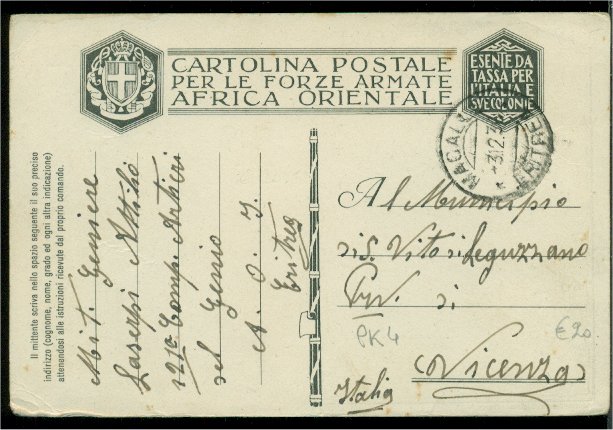 CARTOLINA POSTALE
PER LE FORZE ARMATE
AFRICA ORIENTALE
ESENTE DA
TASSA PER
L'ITALIA E
SVE COLONIE
ERITRE
3.12.3
Il mittente scriva nello spazio seguente il suo preciso
indirizzo (cognome, nome, grado ed ogni altra indicazione)
attenendosi alle istruzioni ricevute dal proprio comando.
Mit. Geniere
Attilio
121ª Comp. Artieri
del Genio
A. O. I.
Eritrea
Al Municipio
di S. Vito di Leguzzano
Prv. di
Vicenza
Italia
PK4
€20